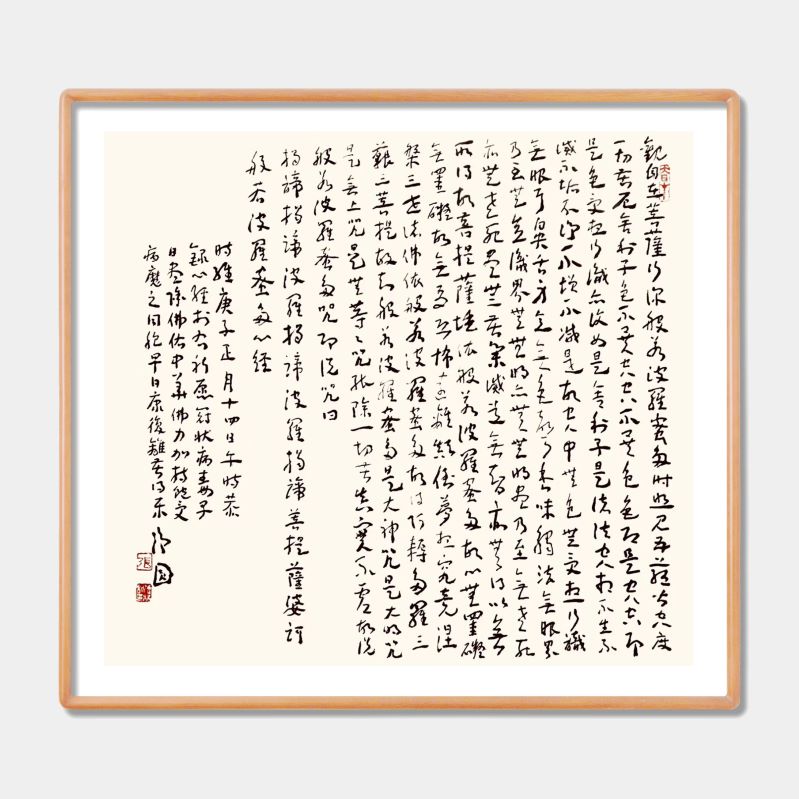 觀自在菩薩行深般若波羅蜜多時照見五蘊皆空度
一切苦厄舍利子色不異空空不異色色即是空空即
是色受想行識亦復如是舍利子是諸法空相不生不
滅不垢不淨不增不減是故空中無色無受想行識
無眼耳鼻舌身意無色聲香味觸法無眼界
乃至無意識界無無明亦無無明盡乃至無老死
亦無老死盡無苦集滅道無智亦無得以無
所得故菩提薩埵依般若波羅蜜多故心無罣礙
無罣礙故無有恐怖遠離顛倒夢想究竟涅
槃三世諸佛依般若波羅蜜多故得阿耨多羅三
藐三菩提故知般若波羅蜜多是大神咒是大明咒
是無上咒是無等等咒能除一切苦真實不虛故說
般若波羅蜜多咒即說咒曰
揭諦揭諦波羅揭諦波羅揭諦菩提薩婆訶
般若波羅蜜多心經
時維庚子正月十四日午時恭
錄心經於右祈愿冠狀病毒
日盡除佛佑中華佛力加持
病魔之同胞早日康復離苦得樂